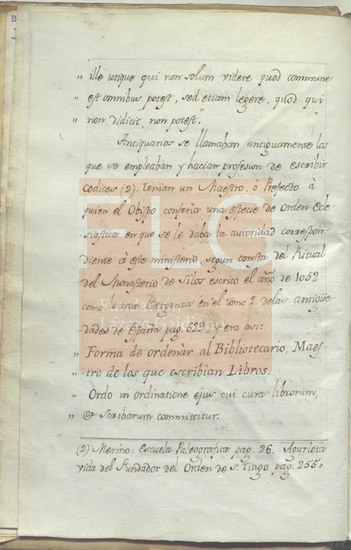 " ille utique qui non solum videre quod commune
" est omnibus potest, sed etiam legere, quod qui
" non didicit non potest".
Antiquarios se llamaban antiguamente los
que se empleaban y hacian profesion de escribir
Codices (2). Tenian un Maestro ó Prefecto à
quien el Obispo conferia una especie de Orden Ecle
siastica en que se le daba la autoridad correspon
diente á este ministerio, segun consta del Ritual
del Monasterio de Silos escrito el año de 1052
como lo trae Berganza en el tomo 2. de las antigüe
dades de España pag. 629. y era asi:
" Forma de ordenàr al Bibliotecario, Maes-
" tro de los que escribian Libros.
" Ordo in ordinatione ejus, cui cura librorum,
" & scribarum committitur.
(2) Merino: Escuela Paleografica pag. 26. Agurleta
vida del Fundador del Orden de S. Tiago pag. 255.